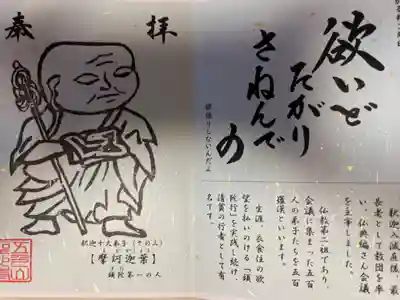 欲いど
たがり
さねんで
の
欲張りしないんだよ
釈迦入滅直後、最
長老として教団を率
い、仏典編さん会議
を主宰しました。
仏教第二祖であり、
会議に集まった五百
人の弟子たちを五百
羅漢といいます。
生涯、衣食住の欲
望を払いのける「頭
陀行」を実践し続け、
清貧の行者として有
名です。
奉拝
釈迦十大弟子
【摩訶迦葉】
頭陀第一の人